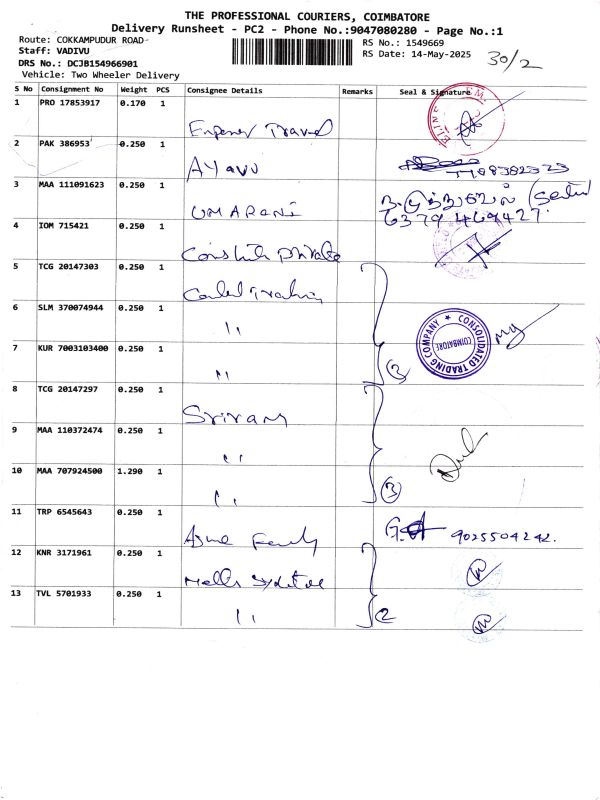 THE PROFESSIONAL COURIERS, COIMBATORE
Delivery Runsheet - PC2 - Phone No.:9047080280 - Page No.:1
Route: COKKAMPUDUR ROAD
Staff: VADIVU
DRS No.: DCJB154966901
Vehicle: Two Wheeler Delivery
RS No.: 1549669
RS Date: 14-May-2025
30/2
S No Consignment No Weight PCS Consignee Details Remarks Seal & Signature
1 PRO 17853917 0.170 1
Travel
2 PAK 386953 0.250 1
AYAVU
3 MAA 111091623 0.250 1
UMARANI
6379469427.
4 IOM 715421 0.250 1
Private
5 TCG 20147303 0.250 1
Trading
6 SLM 370074944 0.250 1
"
CONSOLIDATED TRADING COMPANY
COIMBATORE
7 KUR 7003103400 0.250 1
" 3
8 TCG 20147297 0.250 1
Sriram
9 MAA 110372474 0.250 1
"
10 MAA 707924500 1.290 1
" 3
11 TRP 6545643 0.250 1
9025504242.
12 KNR 3171961 0.250 1
13 TVL 5701933 0.250 1
" 2